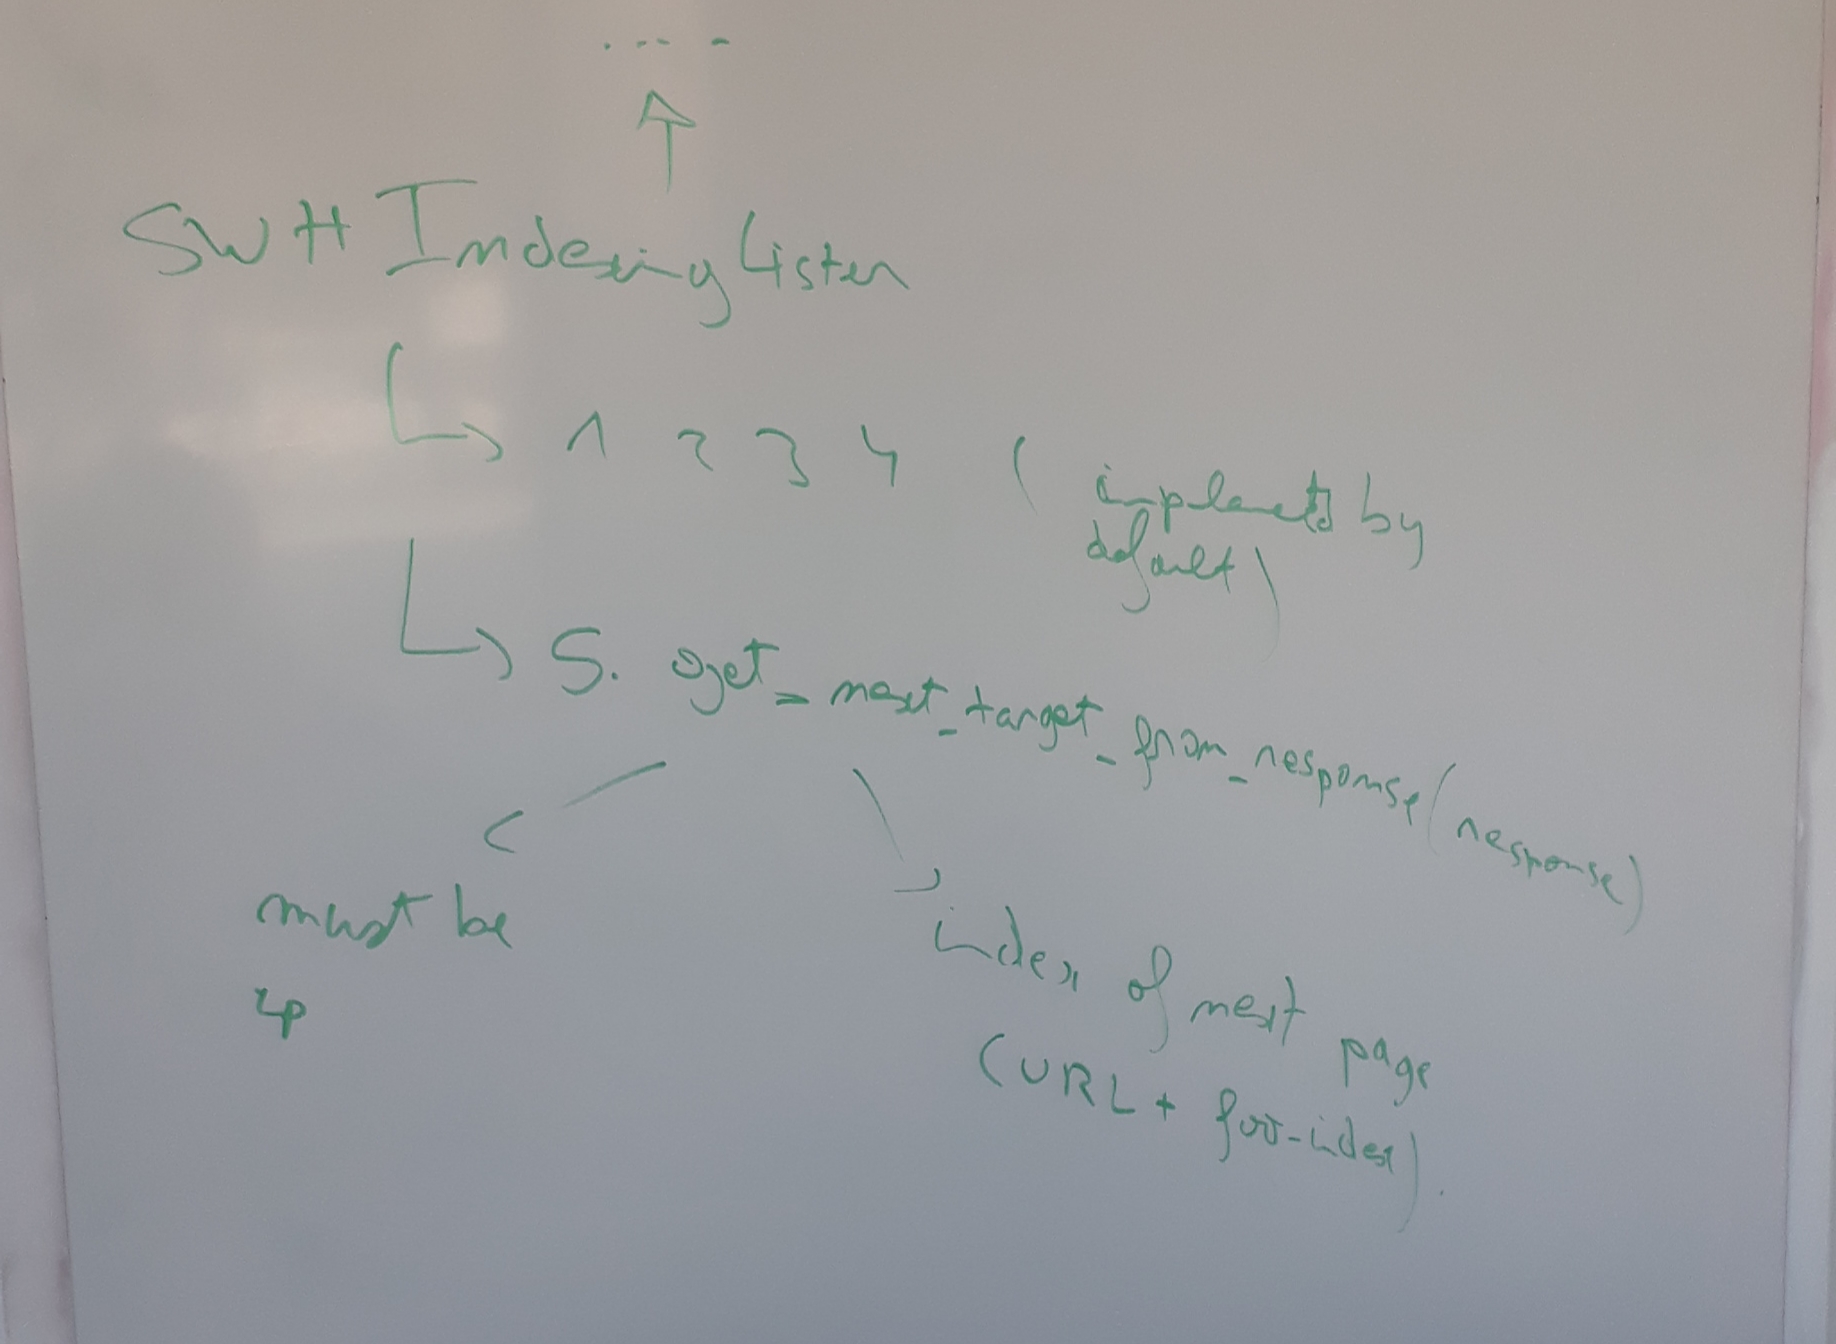 SWH Indexing Lister
1 2 3 4 ( implements by
default)
5. get_next_target_from_response(response)
must be
index of next page
(URL + foo-index)